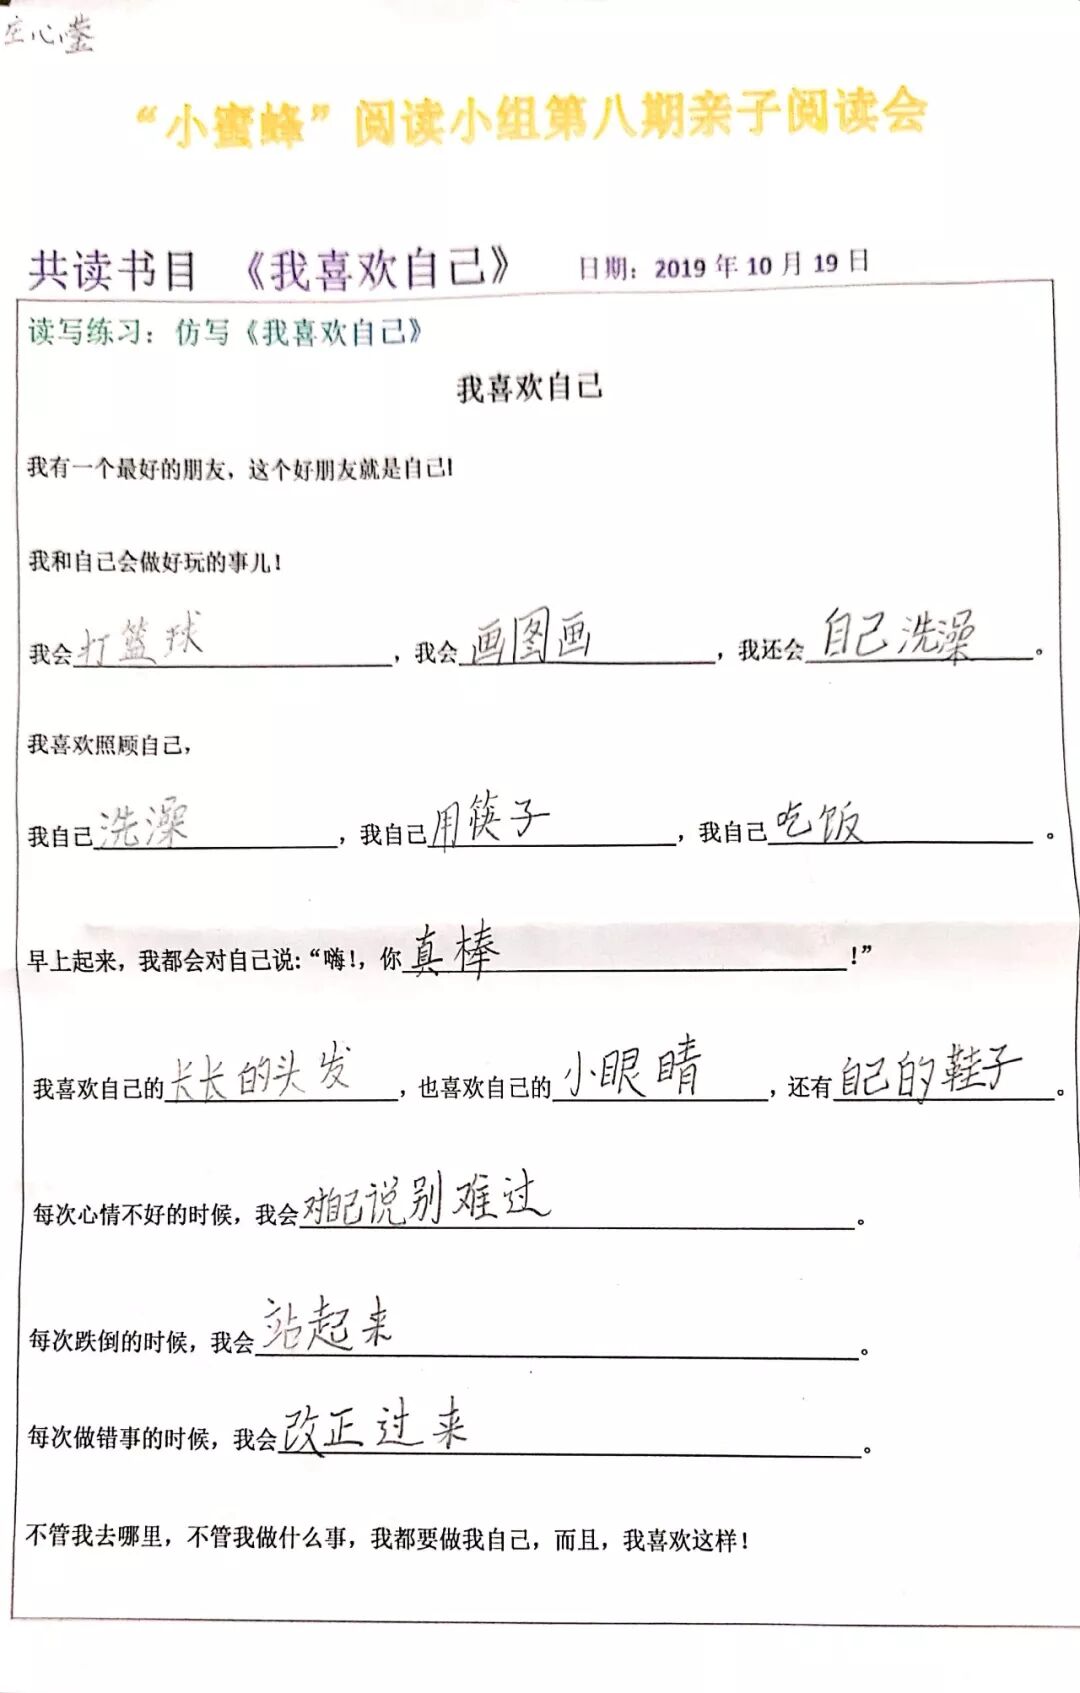 庄心莹
“小蜜蜂”阅读小组第八期亲子阅读会
共读书目 《我喜欢自己》 日期：2019年10月19日
读写练习：仿写《我喜欢自己》
我喜欢自己
我有一个最好的朋友，这个好朋友就是自己!
我和自己会做好玩的事儿！
我会打篮球，我会画图画，我还会自己洗澡。
我喜欢照顾自己，
我自己洗澡，我自己用筷子，我自己吃饭。
早上起来，我都会对自己说：“嗨!，你真棒!”
我喜欢自己的长长的头发，也喜欢自己的小眼睛，还有自己的鞋子。
每次心情不好的时候，我会对自己说别难过。
每次跌倒的时候，我会站起来。
每次做错事的时候，我会改正过来。
不管我去哪里，不管我做什么事，我都要做我自己，而且，我喜欢这样！